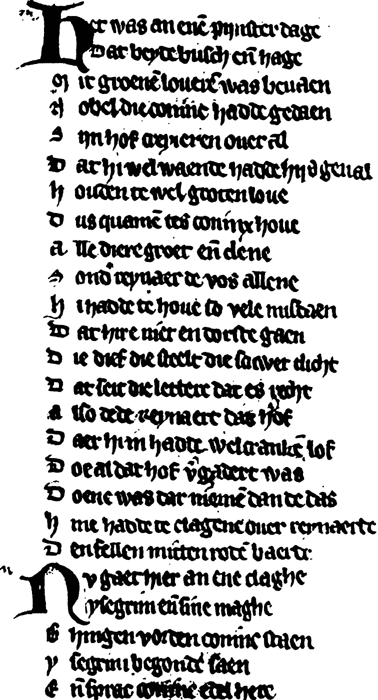 Het was an enē pijnster dage
Dat beyde busch en̄ hage
Mit groenē louerē was beuaen
Nobel die coninc hadde gedaen
Sijn hof creyeren ouer al
Dat hi wel waende hadde hijs geual
Houden te wel groten loue
Dus quamē tes coninx houe
Alle diere groet en̄ clene
Sond' reynaer de vos allene
Hi hadde te houe so vele misdaen
Dat hire niet en dorste gaen
Die dief die steelt die scuwet dicht
Dat seit die lettere dat es recht
Also dede reynaert dat hof
Daer hi in hadde wel crankē lof
Doe al dat hof v'gadert was
Doene was dar niemē dan de das
Hine hadde te clagene ouer reynaerte
Den fellen mitten rodē baerte
Nv gaet hier an ene claghe
Ysegrim en̄ sine maghe
Ghingen vor den coninc staen
ysegrim begonde saen
En̄ sprac coninc edel here